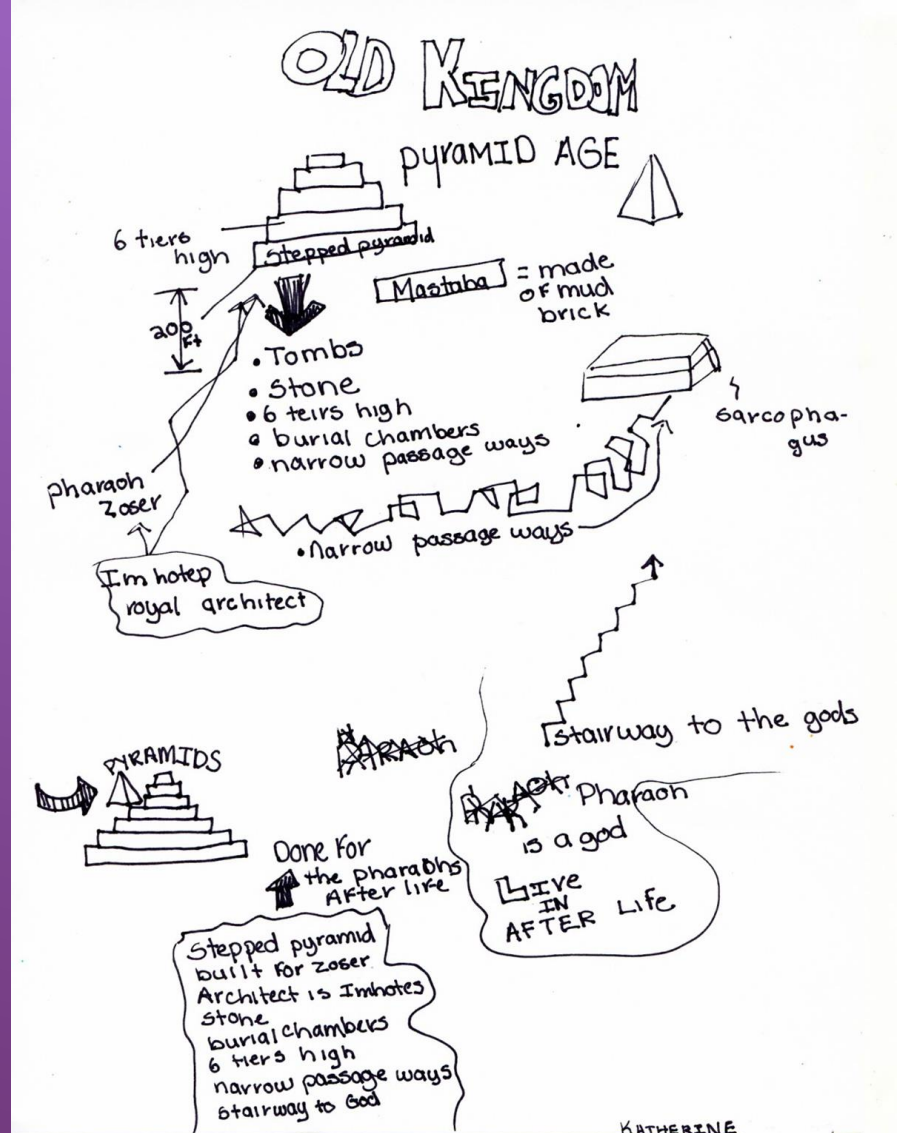 OLD KINGDOM
pyramid AGE
6 tiers
high
stepped pyramid
Mastaba = made
of mud
brick
200
ft
• Tombs
• Stone
• 6 teirs high
• burial chambers
• narrow passage ways
sarcopha-
gus
pharaoh
Zoser
• Narrow passage ways
Imhotep
royal architect
stairway to the gods
PYRAMIDS
Pharaoh
is a god
Live
IN
AFTER Life
Done for
the pharaohs
After life
Stepped pyramid
built for Zoser
Architect is Imhotes
stone
burial chambers
6 tiers high
narrow passage ways
stairway to God
KATHERINE